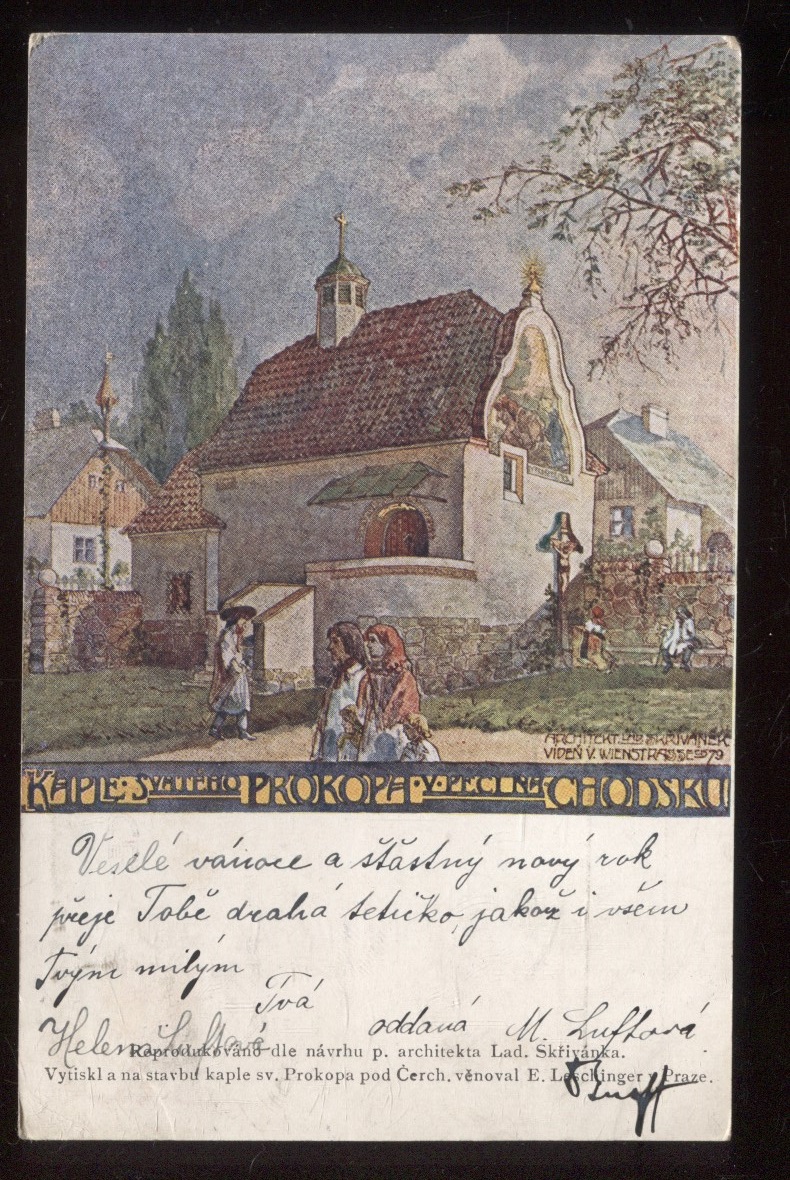 ARCHITEKT LAD. SKŘIVÁNEK
VÍDEŇ V. WIENSTRASSE 79
KAPLE SVATÉHO PROKOPA V PECI NA CHODSKU
Veselé vánoce a šťastný nový rok
přeje Tobě drahá tetičko, jakož i všem
Tvým milým
Tvá
oddaná M. Luftová
Helena Luftová
Reprodukováno dle návrhu p. architekta Lad. Skřivánka.
Vytiskl a na stavbu kaple sv. Prokopa pod Čerch. věnoval E. Leschinger v Praze.